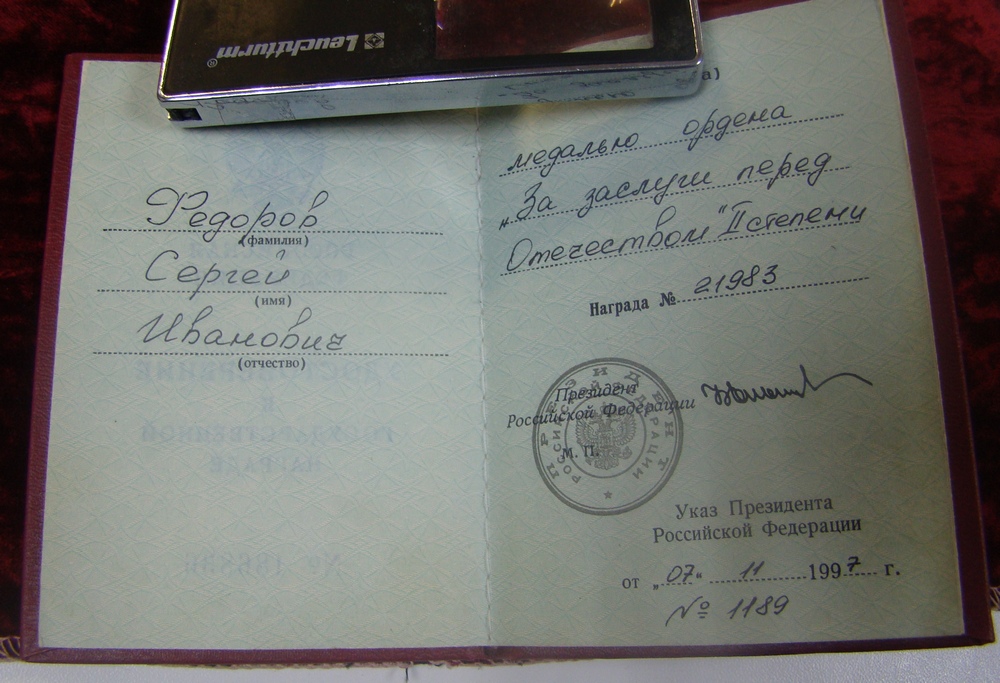 Leuchtturm
®
а)
Федоров
(фамилия)
Сергей
(имя)
Иванович
(отчество)
медалью ордена
„За заслуги перед
Отечеством" II степени
Награда № 21983
Президент
Российской Федерации
М. П.
ПРЕЗИДЕНТ
РОССИЙСКОЙ ФЕДЕРАЦИИ
Указ Президента
Российской Федерации
от „07“ 11 1997 г.
№ 1189